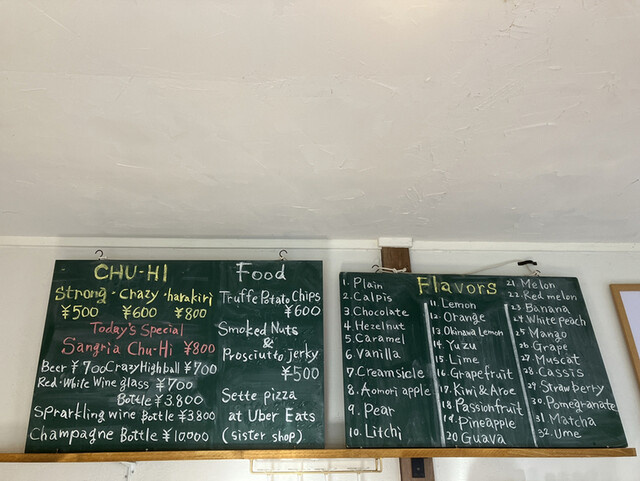 CHU-HI
Strong・Crazy・harakiri
¥500 ¥600 ¥800
Today's Special
Sangria Chu-Hi ¥800
Beer ¥700 Crazy Highball ¥700
Red・White Wine glass ¥700
Bottle ¥3.800
Sparkling wine Bottle ¥3.800
Champagne Bottle ¥10000
Food
Truffe Potato Chips
¥600
Smoked Nuts
&
Prosciutto jerky
¥500
Sette pizza
at Uber Eats
(sister shop)
Flavors
1. Plain
2. Calpis
3. Chocolate
4. Hezelnut
5. Caramel
6. Vanilla
7. Creamsicle
8. Aomori apple
9. Pear
10. Litchi
11. Lemon
12. Orange
13. Okinawa Lemon
14. Yuzu
15. Lime
16. Grapefruit
17. Kiwi & Aroe
18. Passionfruit
19. Pineapple
20 Guava
21. Melon
22. Red melon
23 Banana
24. White peach
25. Mango
26. Grape
27. Muscat
28. Cassis
29. Strawberry
30. Pomegranate
31. Matcha
32. Ume